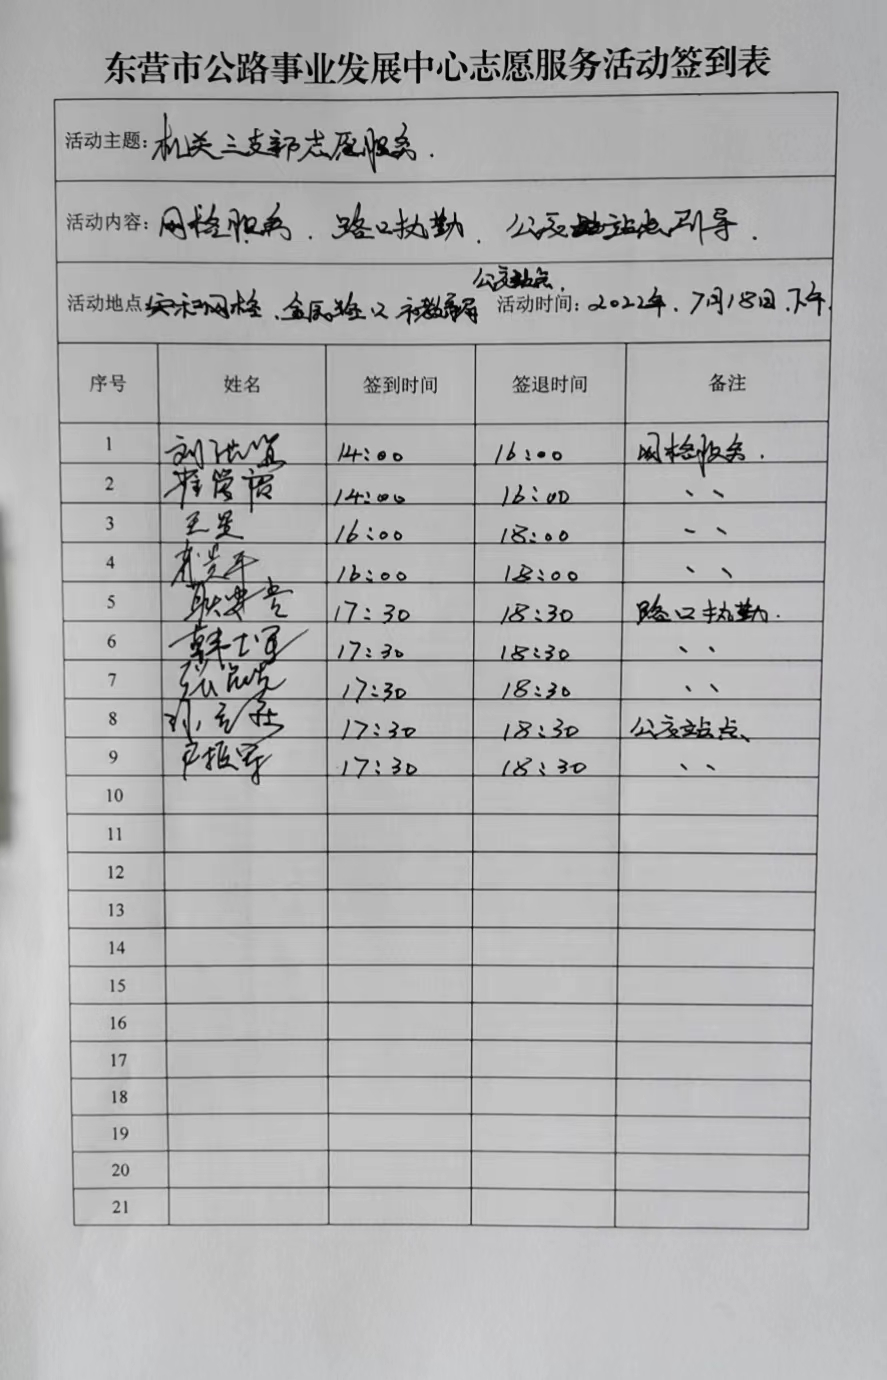 东营市公路事业发展中心志愿服务活动签到表
活动主题: 机关三支部志愿服务.
活动内容: 网检服务. 路口执勤. 公交站点引导.
公交站点.
活动地点: 网检、 口 活动时间: 2022年.7月18日.下午.
序号 姓名 签到时间 签退时间 备注
1 14:00 16:00 网检服务.
2 14:00 16:00 、、
3 王昱 16:00 18:00 、、
4 16:00 18:00 、、
5 17:30 18:30 路口执勤.
6 韩士军 17:30 18:30 、、
7 17:30 18:30 、、
8 17:30 18:30 公交站点、
9 17:30 18:30 、、
10
11
12
13
14
15
16
17
18
19
20
21